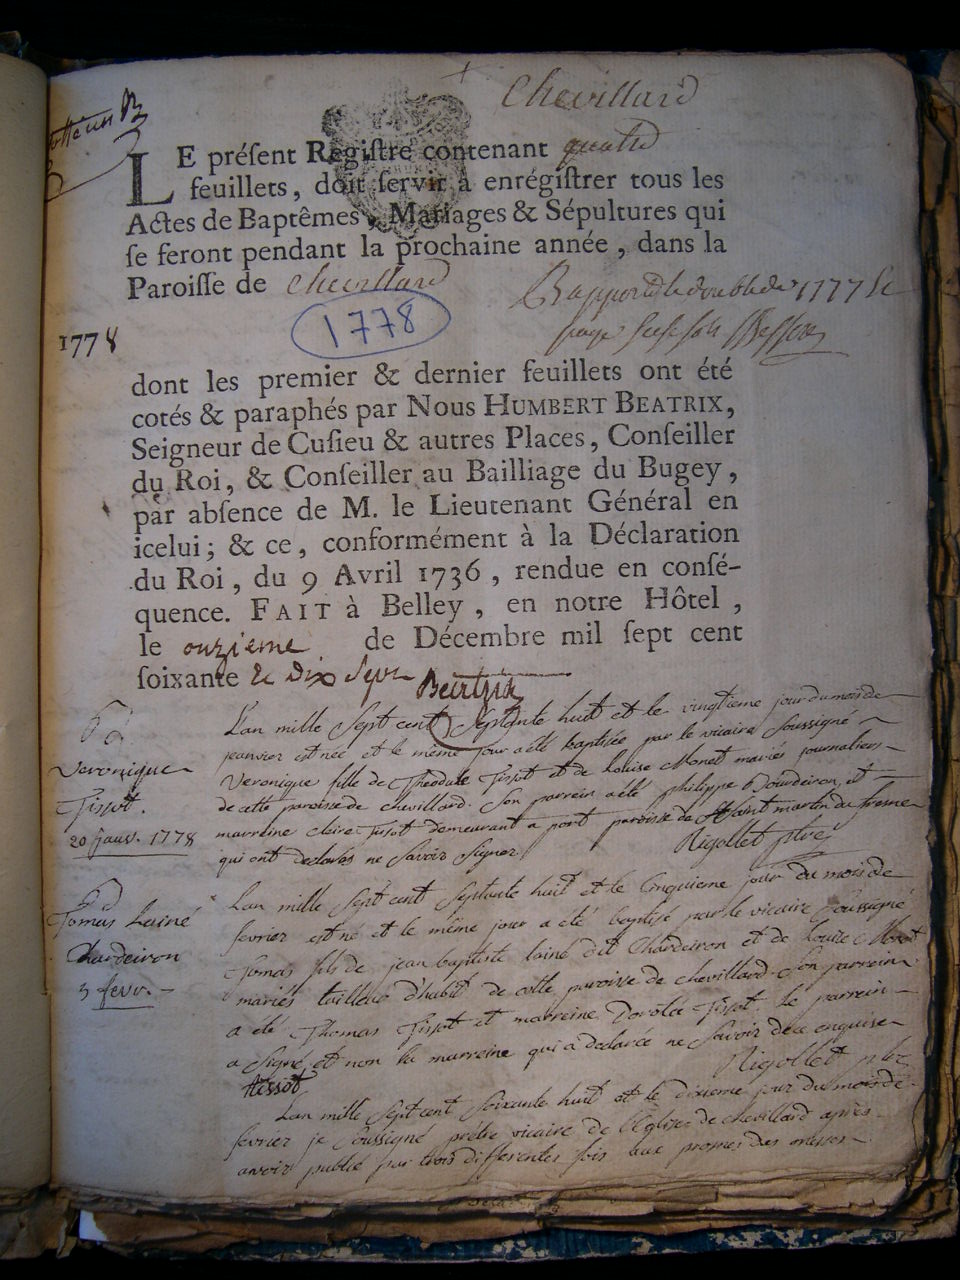 Chevillard
LE préſent Regiſtre contenant quatre
feuillets, doit ſervir à enrégiſtrer tous les
Actes de Baptêmes, Mariages & Sépultures qui
ſe feront pendant la prochaine année, dans la
Paroiſſe de Chevillard
Rapporté le double de 1777
1778
1778
dont les premier & dernier feuillets ont été
cotés & paraphés par Nous HUMBERT BEATRIX,
Seigneur de Cuſieu & autres Places, Conſeiller
du Roi, & Conſeiller au Bailliage du Bugey,
par abſence de M. le Lieutenant Général en
icelui; & ce, conformément à la Déclaration
du Roi, du 9 Avril 1736, rendue en conſé-
quence. FAIT à Belley, en notre Hôtel,
le onzieme de Décembre mil ſept cent
ſoixante & dix sept Beatrix
Veronique
Tissot.
20 janv. 1778
L'an mille Sept cent Septante huit et le vingtieme jour du mois de
janvier est née et le même jour a été baptisée par le vicaire Soussigné
Veronique fille de Theodule Tissot et de Louise Monet mariés journaliers
de cette paroisse de chevillard. Son parrein a été philippe Bourdeiron, et
marreine claire Tissot demeurant a port paroisse de Saint martin du fresne
qui ont declarés ne Savoir Signer Rigollet ptre
Tomas Lainé
Chardeiron
5 fevr.
L'an mille Sept cent Septante huit et le Cinquieme jour du mois de
fevrier est né et le même jour a été baptisé par le vicaire Soussigné
Tomas fils de jean baptiste lainé dit Chardeiron et de Louise Monet
mariés tailleur d'habit de cette paroisse de chevillard. Son parrein
a été Thomas Tissot et marreine Dorotée Tissot. le parrein
a Signé et non la marreine qui a declarée ne Savoir de ce enquise
Rigollet ptre
tissot
L'an mille Sept cent Soixante huit et le dixieme jour du mois de
fevrier je Soussigné prêtre vicaire de l'Eglise de chevillard après
avoir publié par trois differentes fois aux prones des messes